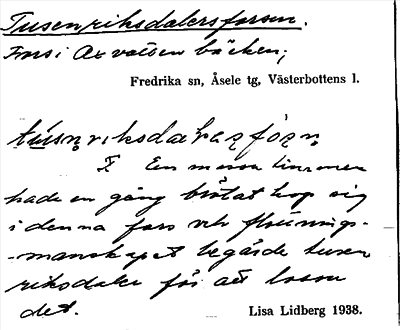 Tusenriksdalersforsen.
Fors i Axvattenbäcken;
Fredrika sn, Åsele tg, Västerbottens l.
En massa timmer
hade en gång brötat hop sig
i denna fors och flottnings-
-manskapet begärde tusen
riksdaler för att lossa
det.
Lisa Lidberg 1938.